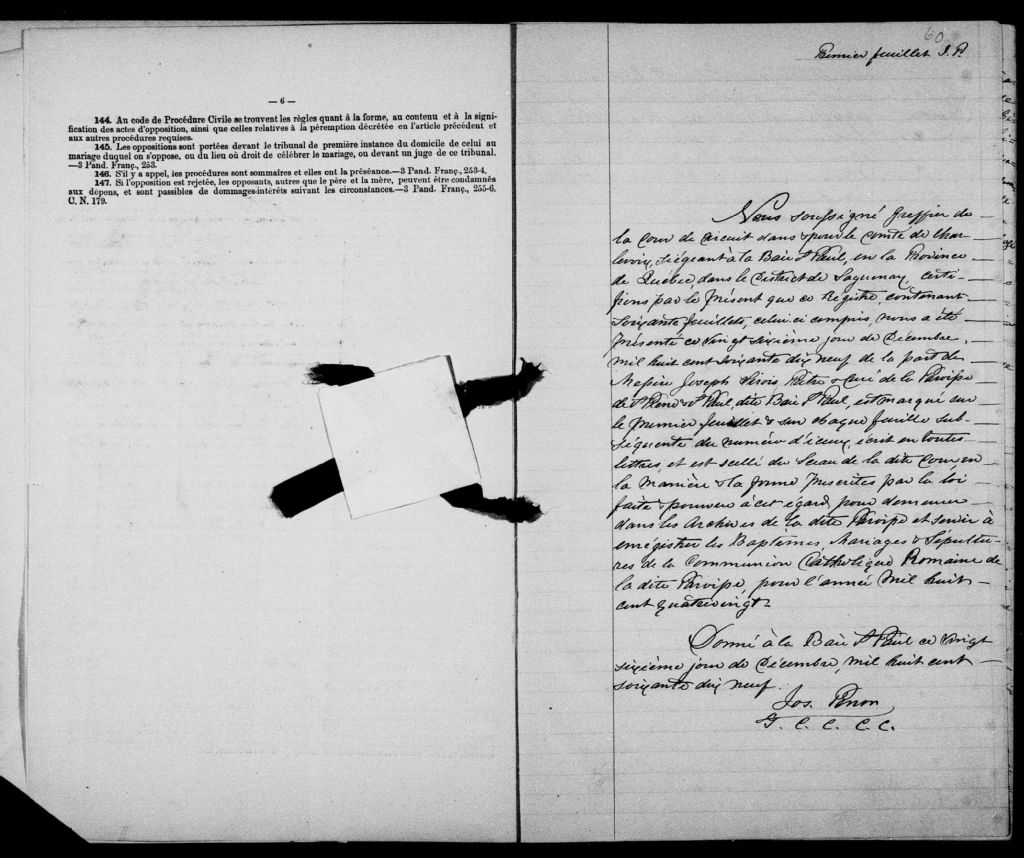 — 6 —
144. Au code de Procédure Civile se trouvent les règles quant à la forme, au contenu et à la signi-
fication des actes d'opposition, ainsi que celles relatives à la péremption décrétée en l'article précédent et
aux autres procédures requises.
145. Les oppositions sont portées devant le tribunal de première instance du domicile de celui au
mariage duquel on s'oppose, ou du lieu où droit de célébrer le mariage, ou devant un juge de ce tribunal.
—3 Pand. Franç., 253.
146. S'il y a appel, les procédures sont sommaires et elles ont la préséance.—3 Pand. Franç., 253-4.
147. Si l'opposition est rejetée, les opposants, autres que le père et la mère, peuvent être condamnés
aux dépens, et sont passibles de dommages-intérêts suivant les circonstances.—3 Pand. Franç., 255-6.
C. N. 179.
60
Premier feuillet J. P.
Nous soussigné Greffier de
la Cour de Circuit dans & pour le comté de Char-
levoix, siégeant à la Baie St Paul, en la Province
de Québec, dans le District de Saguenay, certi-
fions par le présent que ce Régistre, contenant
soixante feuillets, celui ci compris, nous a été
présenté ce vingt sixième jour de Décembre,
mil huit cent soixante dix neuf de la part de
Messire Joseph Sirois Prêtre & Curé de la Paroisse
de St Pierre & St Paul, dite Baie St Paul, est marqué sur
le premier feuillet & sur chaque feuille sub-
séquente du numéro d'iceux, écrit en toutes
lettres, et est scellé du Sceau de la dite Cour en
la Manière & la forme prescrites par la loi
faite & pourvue à cet égard, pour demeurer
dans les Archives de la dite Paroisse et servir à
enrégistrer les Baptêmes, Mariages & Sépultu-
res de la Communion Catholique Romaine de
la dite Paroisse, pour l'année mil huit
cent quatrevingt.
Donné à la Baie St Paul ce vingt
sixième jour de Décembre, mil huit cent
soixante dix neuf.
Jos. Perron
G. C. C. C. C.